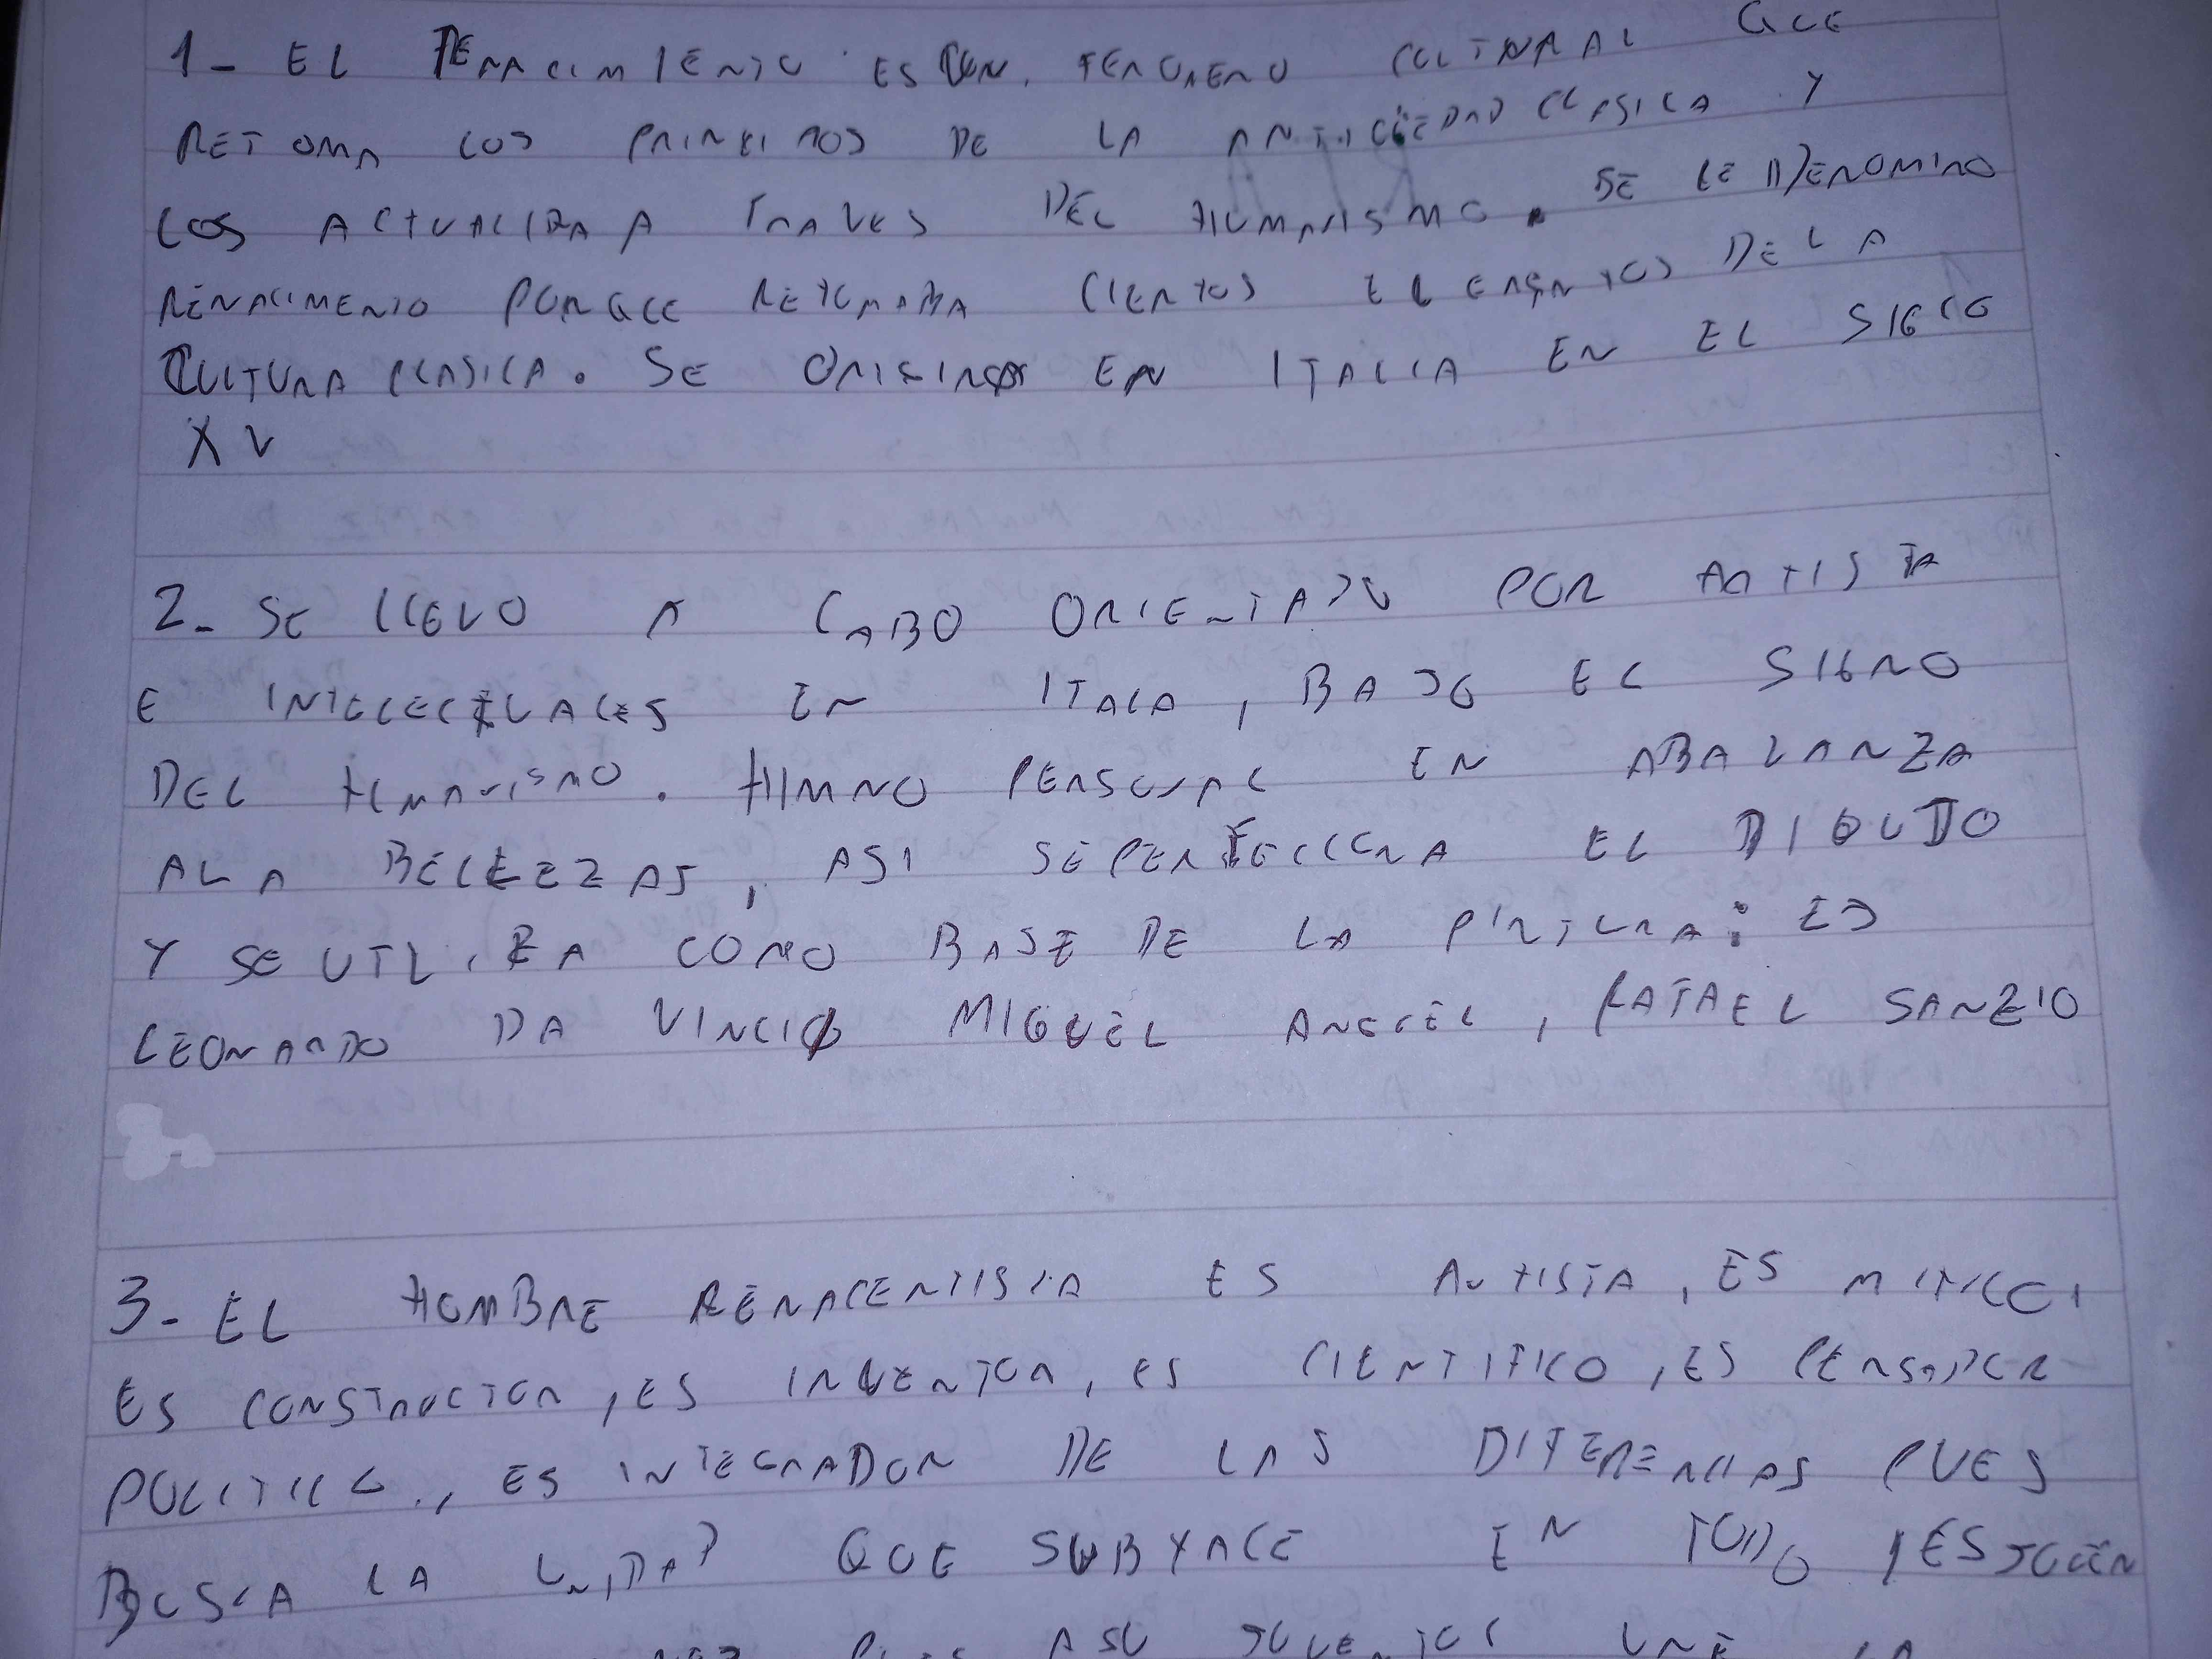 1- EL RENACIMIENTO ES UN FENOMENO CULTURAL QUE
RETOMA LOS PRINCIPIOS DE LA ANTIGUEDAD CLASICA Y
LOS ACTUALIZA A TRAVES DEL HUMANISMO. SE LE DENOMINO
RENACIMENTO PORQUE RETOMABA CIERTOS ELEMENTOS DE LA
CULTURA CLASICA. SE ORIGINO EN ITALIA EN EL SIGLO
XV
2- SE LLEVO A CABO ORIENTADO POR ARTISTA
E INTELECTUALES EN ITALA, BAJO EL SIGNO
DEL HUMANISMO. HIMNO PERSONAL EN ABALANZA
A LA BELLEZZAS, ASI SE PERFECCIONA EL DIBUJO
Y SE UTILIZA COMO BASE DE LA PINTURA: ES
LEONARDO DA VINCI MIGUEL ANGEL, RAFAEL SANZIO
3- EL HOMBRE RENACENTISTA ES ARTISTA, ES MITICO,
ES CONSTRUCTOR, ES INVENTOR, ES CIENTIFICO, ES PENSADOR
POLITICO., ES INTEGRADOR DE LAS DIFERENCIAS PUES
BUSCA LA UNIDAD QUE SUBYACE EN TODO, ES JOVEN
A SU UNE LA